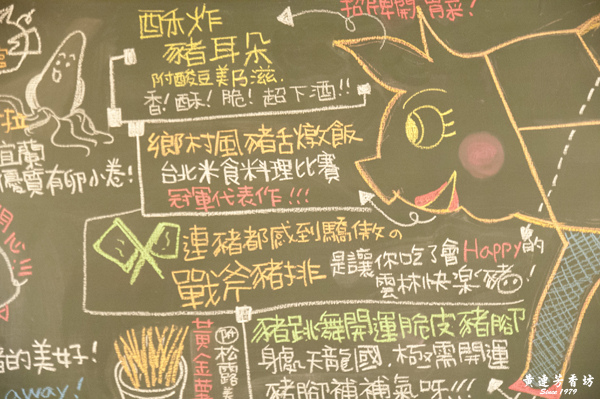 招牌開胃菜!
酥炸
豬耳朵
附酸豆美乃滋.
香!酥!脆!超下酒!!
宜蘭
優質有卵小卷!
鄉村風豬舌燉飯
台北米食料理比賽
冠軍代表作!!!
連豬都感到驕傲の
戰斧豬排
是讓你吃了會Happy的
雲林快樂豬!
豬跳舞開運脆皮豬腳
身處天龍國,極需開運
豬腳補補氣呀!!!
的美好!
away!
黃金薯
松露美
黃連芳香坊
Since 1979